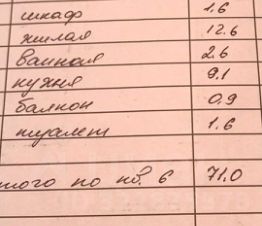 шкаф 1.6
жилая 12.6
ванная 2.6
кухня 9.1
балкон 0.9
туалет 1.6
того по кв. 6 71.0